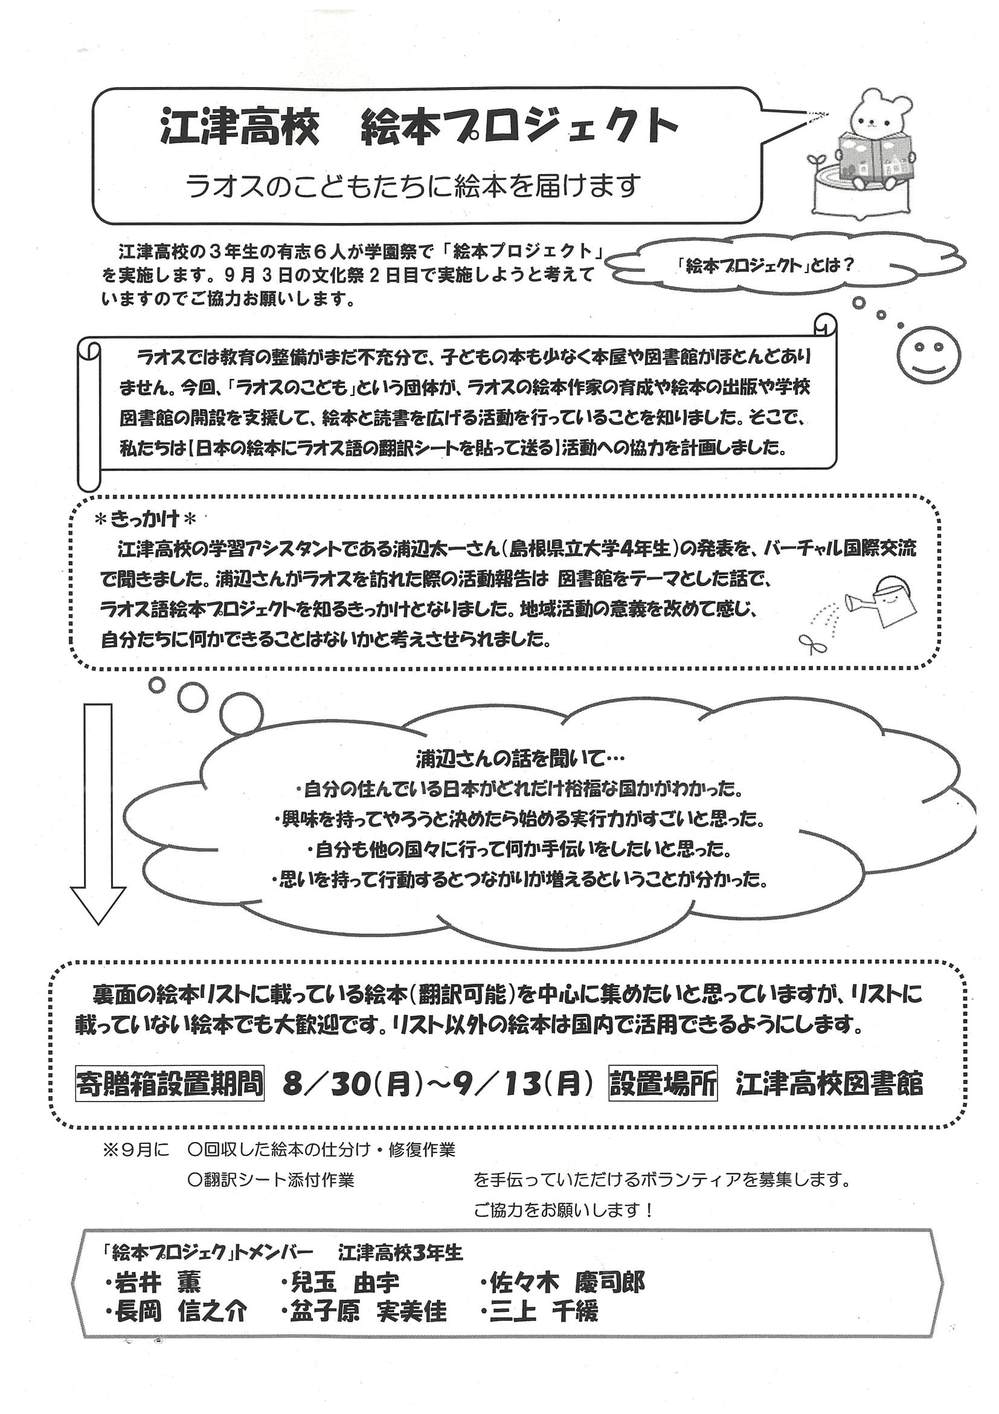 江津高校　絵本プロジェクト
ラオスのこどもたちに絵本を届けます
江津高校の３年生の有志６人が学園祭で「絵本プロジェクト」
を実施します。９月３日の文化祭２日目で実施しようと考えて
いますのでご協力お願いします。
「絵本プロジェクト」とは？
ラオスでは教育の整備がまだ不充分で、子どもの本も少なく本屋や図書館がほとんどあり
ません。今回、「ラオスのこども」という団体が、ラオスの絵本作家の育成や絵本の出版や学校
図書館の開設を支援して、絵本と読書を広げる活動を行っていることを知りました。そこで、
私たちは【日本の絵本にラオス語の翻訳シートを貼って送る】活動への協力を計画しました。
＊きっかけ＊
江津高校の学習アシスタントである浦辺太一さん（島根県立大学４年生）の発表を、バーチャル国際交流
で聞きました。浦辺さんがラオスを訪れた際の活動報告は 図書館をテーマとした話で、
ラオス語絵本プロジェクトを知るきっかけとなりました。地域活動の意義を改めて感じ、
自分たちに何かできることはないかと考えさせられました。
浦辺さんの話を聞いて…
・自分の住んでいる日本がどれだけ裕福な国かがわかった。
・興味を持ってやろうと決めたら始める実行力がすごいと思った。
・自分も他の国々に行って何か手伝いをしたいと思った。
・思いを持って行動するとつながりが増えるということが分かった。
裏面の絵本リストに載っている絵本（翻訳可能）を中心に集めたいと思っていますが、リストに
載っていない絵本でも大歓迎です。リスト以外の絵本は国内で活用できるようにします。
寄贈箱設置期間　８／３０（月）～９／１３（月）　設置場所　江津高校図書館
※９月に　○回収した絵本の仕分け・修復作業
○翻訳シート添付作業　を手伝っていただけるボランティアを募集します。
ご協力をお願いします！
「絵本プロジェク」トメンバー　江津高校３年生
・岩井　薫　・兒玉　由宇　・佐々木　慶司郎
・長岡　信之介　・盆子原　実美佳　・三上　千緩